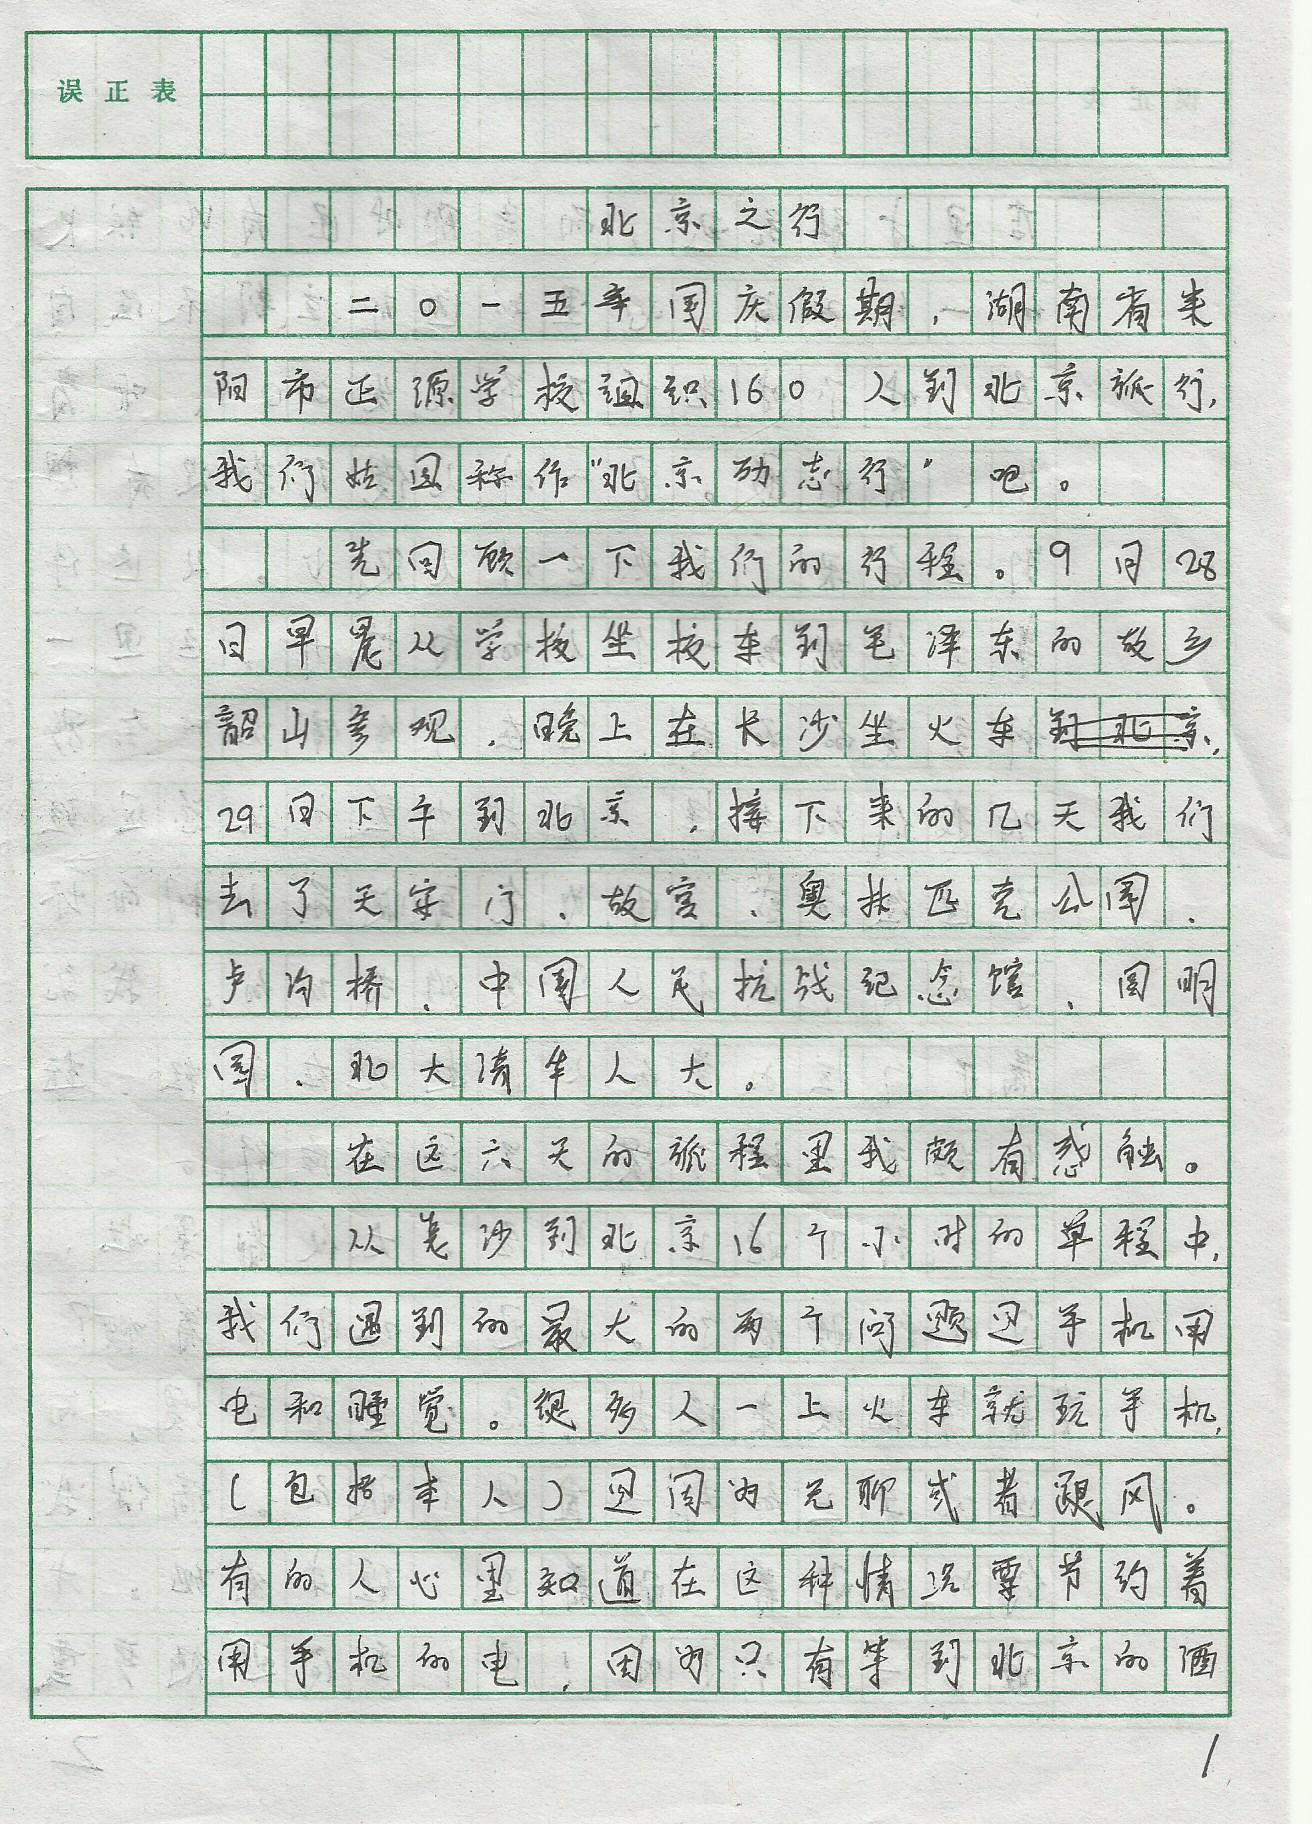 误正表
北京之行
二〇一五年国庆假期，湖南省耒
阳市正源学校组织160人到北京旅行，
我们姑且称作“北京励志行”吧。
先回顾一下我们的行程。9月28
日早晨从学校坐校车到毛泽东的故乡
韶山参观，晚上在长沙坐火车到北京，
29日下午到北京，接下来的几天我们
去了天安门、故宫、奥林匹克公园、
卢沟桥、中国人民抗战纪念馆、圆明
园、北大清华人大。
在这六天的旅程里我颇有感触。
从长沙到北京16个小时的车程中，
我们遇到的最大的两个问题是手机用
电和睡觉。很多人一上火车就玩手机，
（包括本人）是因为无聊或者跟风。
有的人心里知道在这种情况要节约着
用手机的电，因为只有等到北京的酒
1